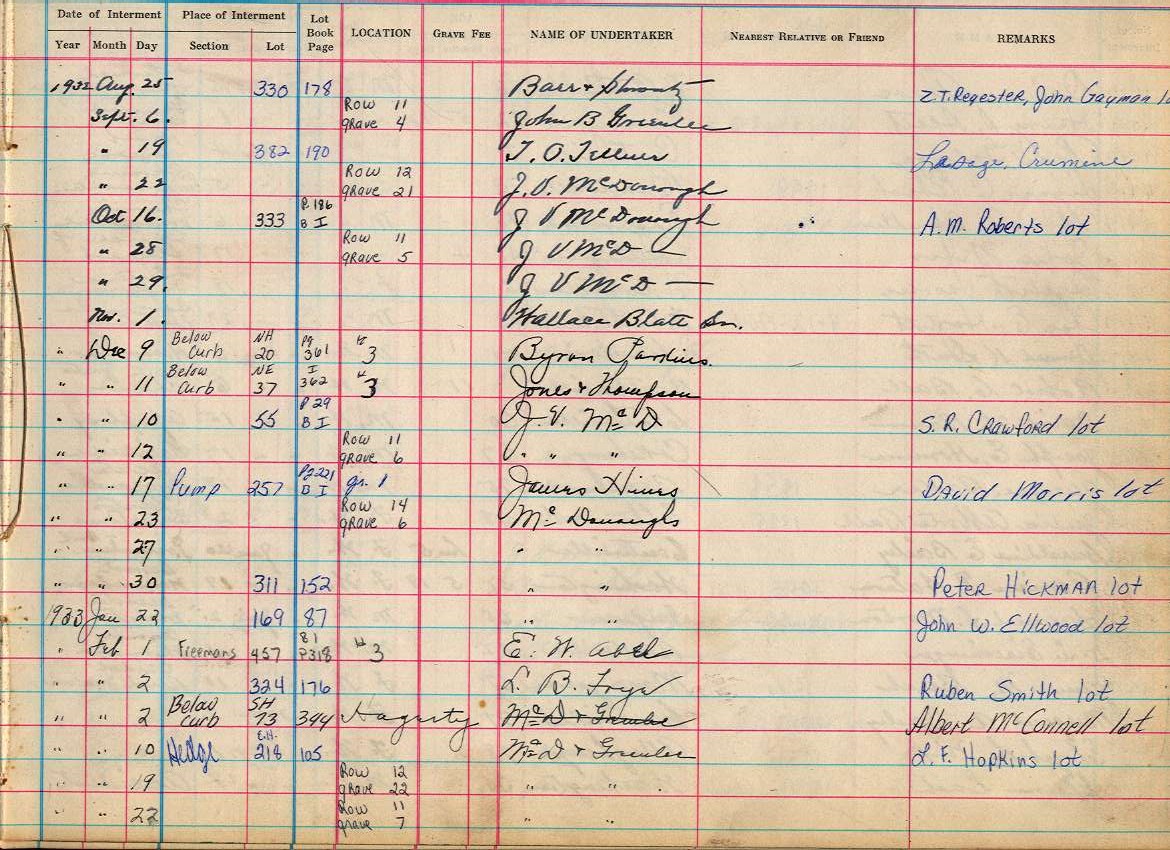 Date of Interment Place of Interment Lot Book Page LOCATION GRAVE FEE NAME OF UNDERTAKER NEAREST RELATIVE OR FRIEND REMARKS
Year Month Day Section Lot
1932 Aug. 25 330 178 Baer & Z.T. Regester, John Gayman
Sept. 6. Row 11 grave 4 John B Greenlee
" 19 382 190 T. O. Lesage, Crumine
" 22 Row 12 grave 21 J. V. McDonough
Oct 16. 333 P. 186 B I J V McDonough A.M. Roberts lot
" 28 Row 11 grave 5 J V McD
" 29. J V McD —
Nov. 1. Wallace Blatt Sn.
" Dec 9 Below Curb NH 20 Pg 361 # 3 Byron Parkins.
" " 11 Below Curb NE 37 I 362 # 3 Jones & Thompson
" " 10 55 P 29 B I J. V. McD S. R. Crawford lot
" " 12 Row 11 grave 6 " " "
" " 17 Pump 257 Pg 221 B I gr. 1 James Hines David Morris lot
" " 23 Row 14 grave 6 McDonoughs
" " 27 " "
" " 30 311 152 " " Peter Hickman lot
1933 Jan 22 169 87 " " John W. Ellwood lot
" Feb 1 Freemans 457 B1 P318 # 3 E. W. Abel
" " 2 324 176 L. B. Frye Ruben Smith lot
" " 2 Below Curb SH 73 344 Hagerty McD & Albert McConnell lot
" " 10 Hedge E.H. 218 105 McD & Greenlee L. F. Hopkins lot
" " 19 Row 12 grave 22 " "
" " 22 Row 11 grave 7 " "